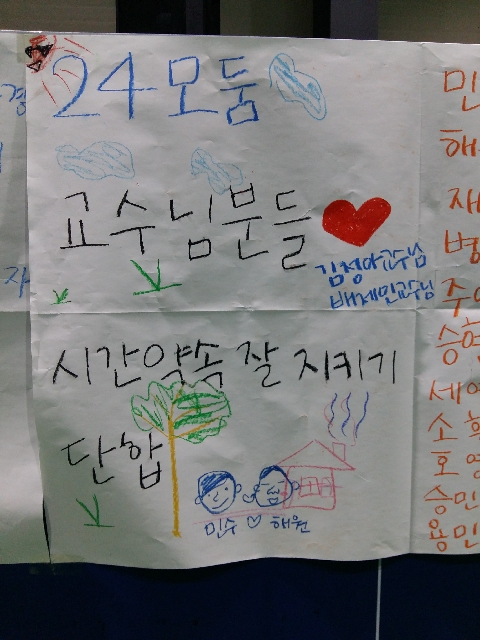 24모둠
교수님분들
김정아교수님
배제민교수님
시간약속 잘 지키기
단합
민수 ♡ 해원
민
해
재
병
주
승혁
세
소
호영
승민
용민